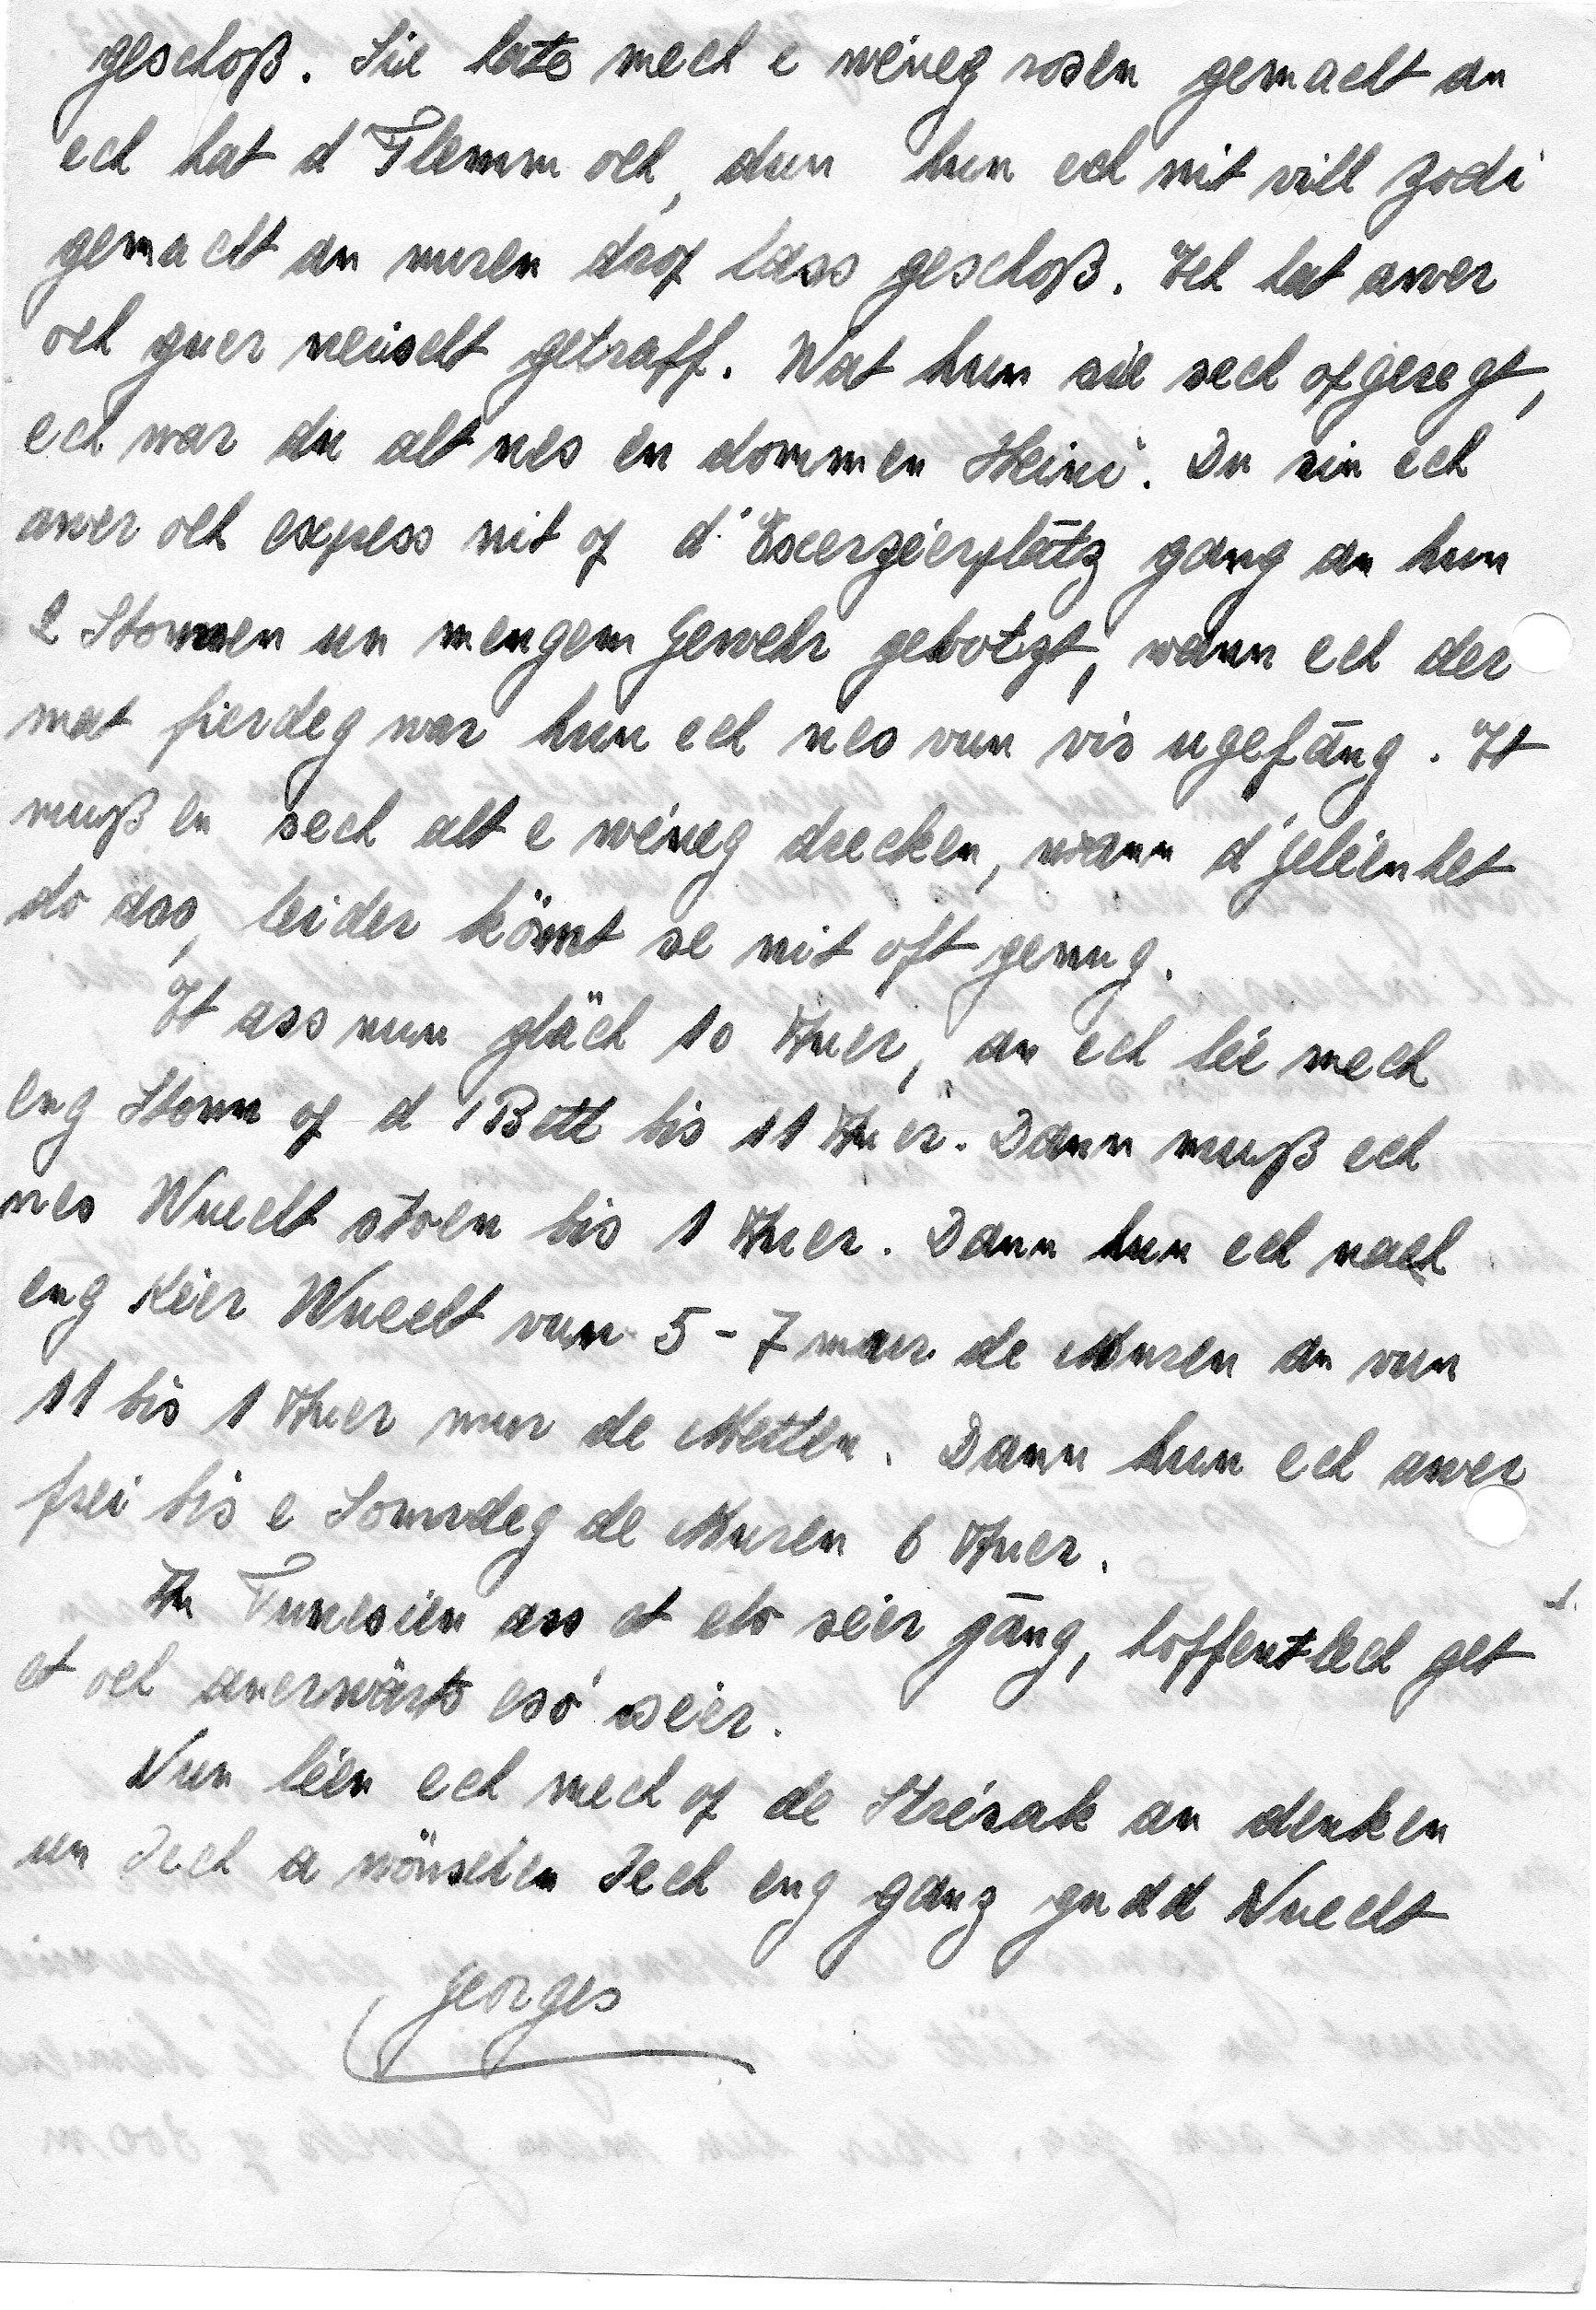 geschoß. Sie hate mech e wéneg rosen gemacht an
ech hat d'Flemm och, dun hun ech nit vill Zodi
gemacht an nuren drop lass geschoß. Ech hat awer
och guer neischt getraff. Wat hun sie sech opgeregt,
ech war du alt nes en dommen Heini. Du sin ech
awer och expess nit op d'Exerzéierplātz gang an hun
2 Stonnen un mengem Gewehr gebotzt, wann ech der
mat fierdeg war hun ech nes vun vir ugefāng. Et
muß en sech alt e wéneg drecken, wann d'Geléenhet
do ass, leider kömt se nit oft genug.
Et ass nun gläch 10 Auer, an ech lée mech
eng Stonn op d'Bett bis 11 Auer. Dann muß ech
nes Wuecht stoen bis 1 Auer. Dann hun ech nach
eng Kéier Wuecht vun 5-7 muer de Muren an vun
11 bis 1 Auer muer de Metten. Dann hun ech awer
frei bis e Sonndeg de Muren 6 Auer.
An Tunesien ass et elo séier gāng, hoffentlech get
et och anerwärts esó séier.
Nun léen ech mech op de Strésak an denken
un Iech a wönschen Iech eng ganz gudd Nuecht
Georges